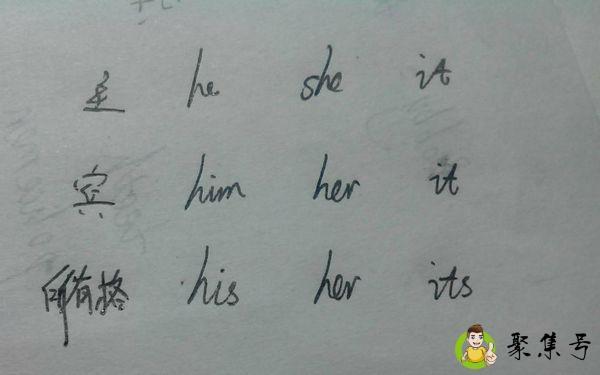 主 he she it
宾 him her it
所有格 his her its
聚集号